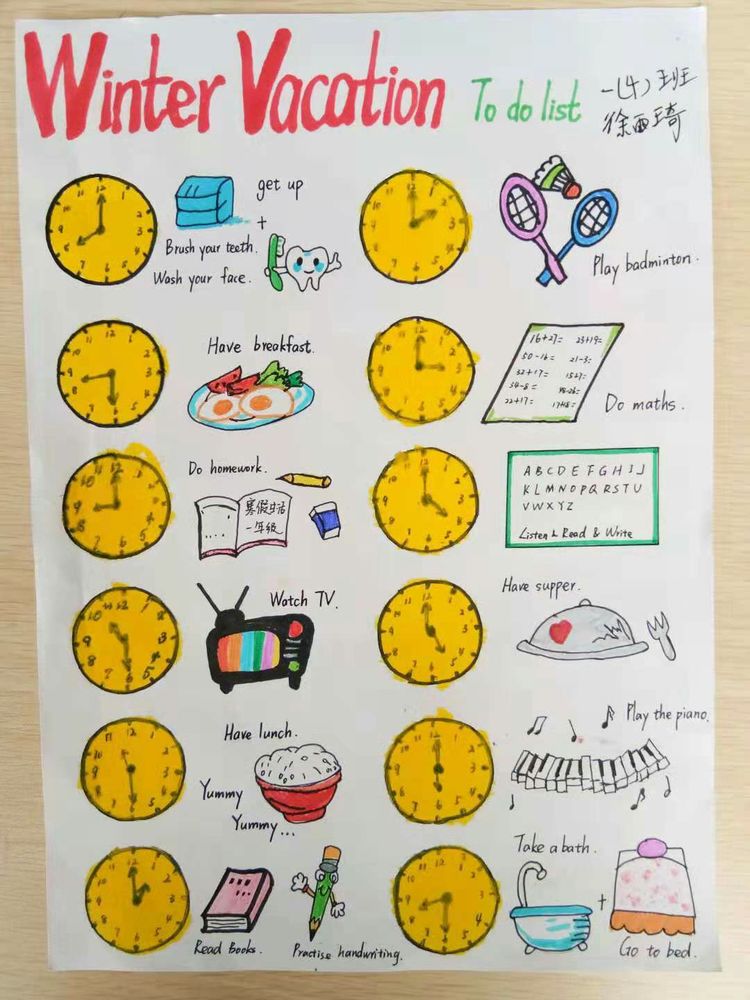 Winter Vacation To do list
一(4)班
徐西琦
get up
+
Brush your teeth.
Wash your face.
Play badminton.
Have breakfast.
16+27= 23+19=
50-16= 21-3=
32+17= 15+27=
34-8=
22+17=
Do maths.
Do homework.
寒假生活
一年级
A B C D E F G H I J
K L M N O P Q R S T U
V W X Y Z
Listen & Read & Write
Watch TV.
Have supper.
Have lunch.
Yummy
Yummy...
Play the piano.
Read Books.
Practise handwriting.
Take a bath.
+
Go to bed.